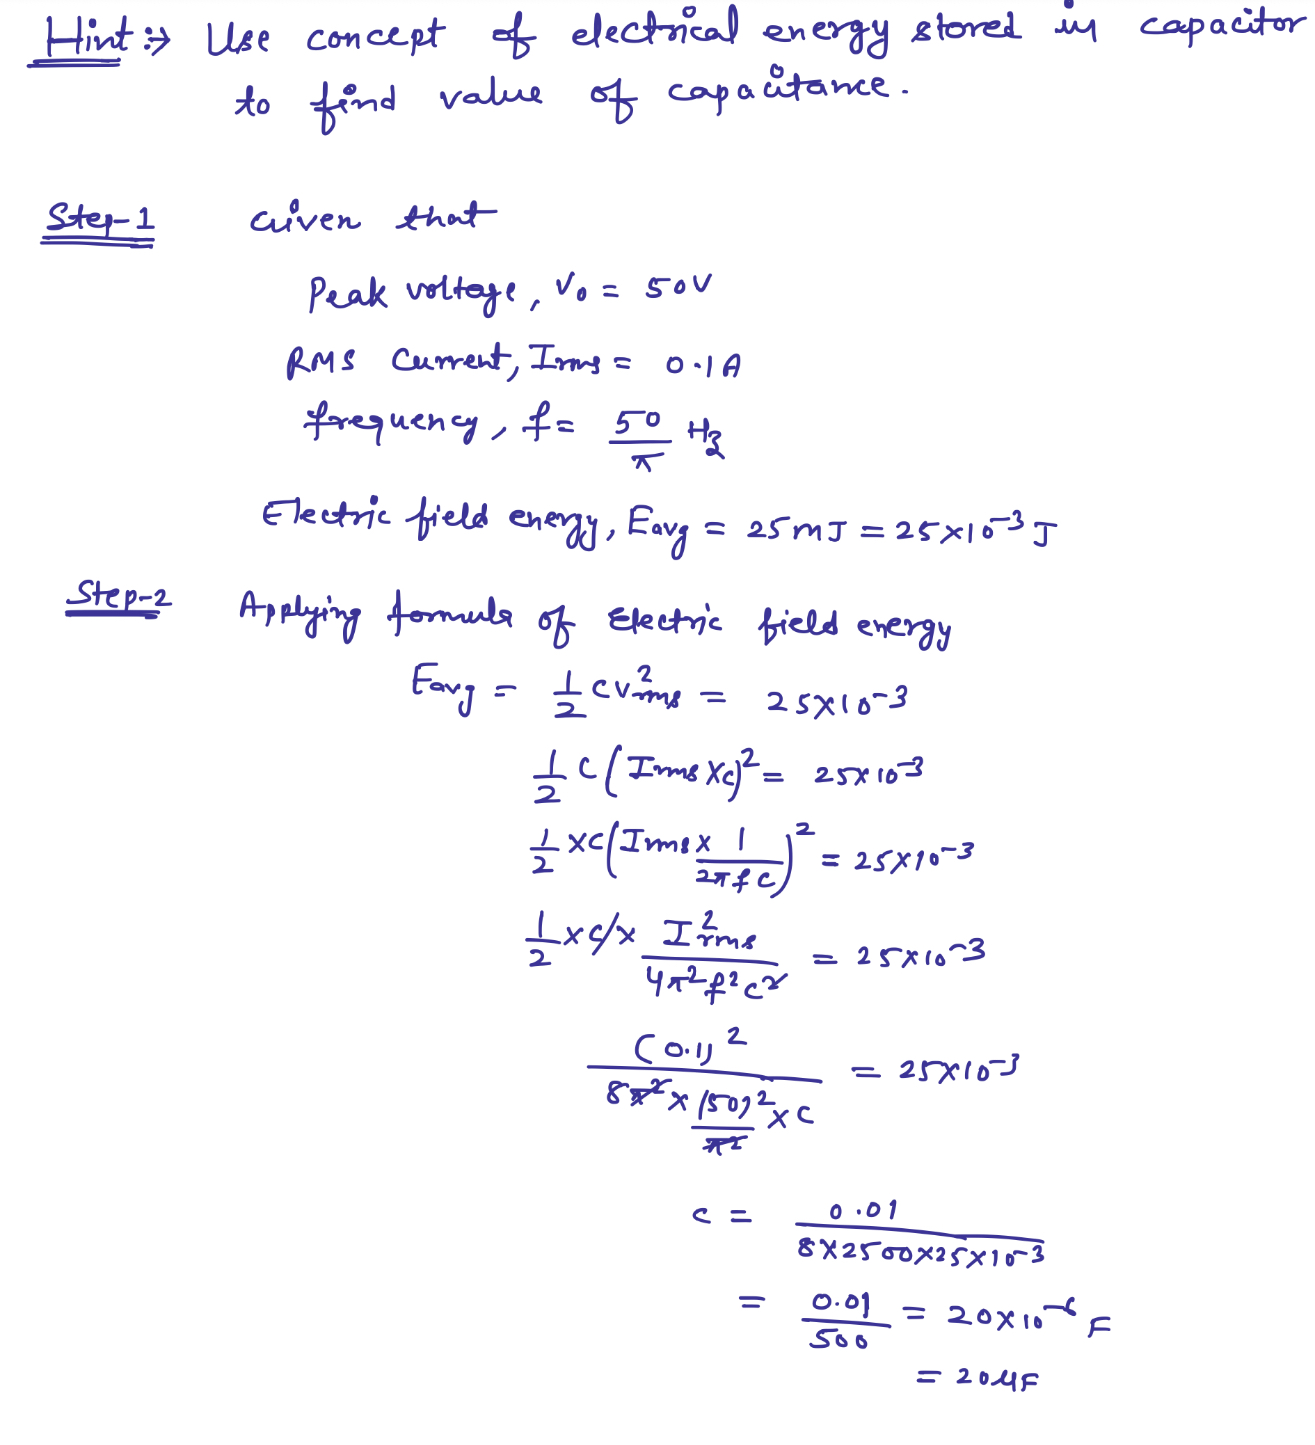 Hint :→ Use concept of electrical energy stored in capacitor
to find value of capacitance.
Step-1 Given that
Peak voltage, V₀ = 50V
RMS Current, Irms = 0.1A
frequency, f = 50/π Hz
Electric field energy, Eavg = 25mJ = 25×10⁻³ J
Step-2 Applying formula of Electric field energy
Eavg = 1/2 CV²rms = 25×10⁻³
1/2 C(Irms Xc)² = 25×10⁻³
1/2 ×C(Irms × 1/2πfC)² = 25×10⁻³
1/2 × C × I²rms/4π²f²C² = 25×10⁻³
(0.1)²/8π² × (50)²/π² × C = 25×10⁻³
C = 0.01/8×2500×25×10⁻³
= 0.01/500 = 20×10⁻⁶ F
= 20μF